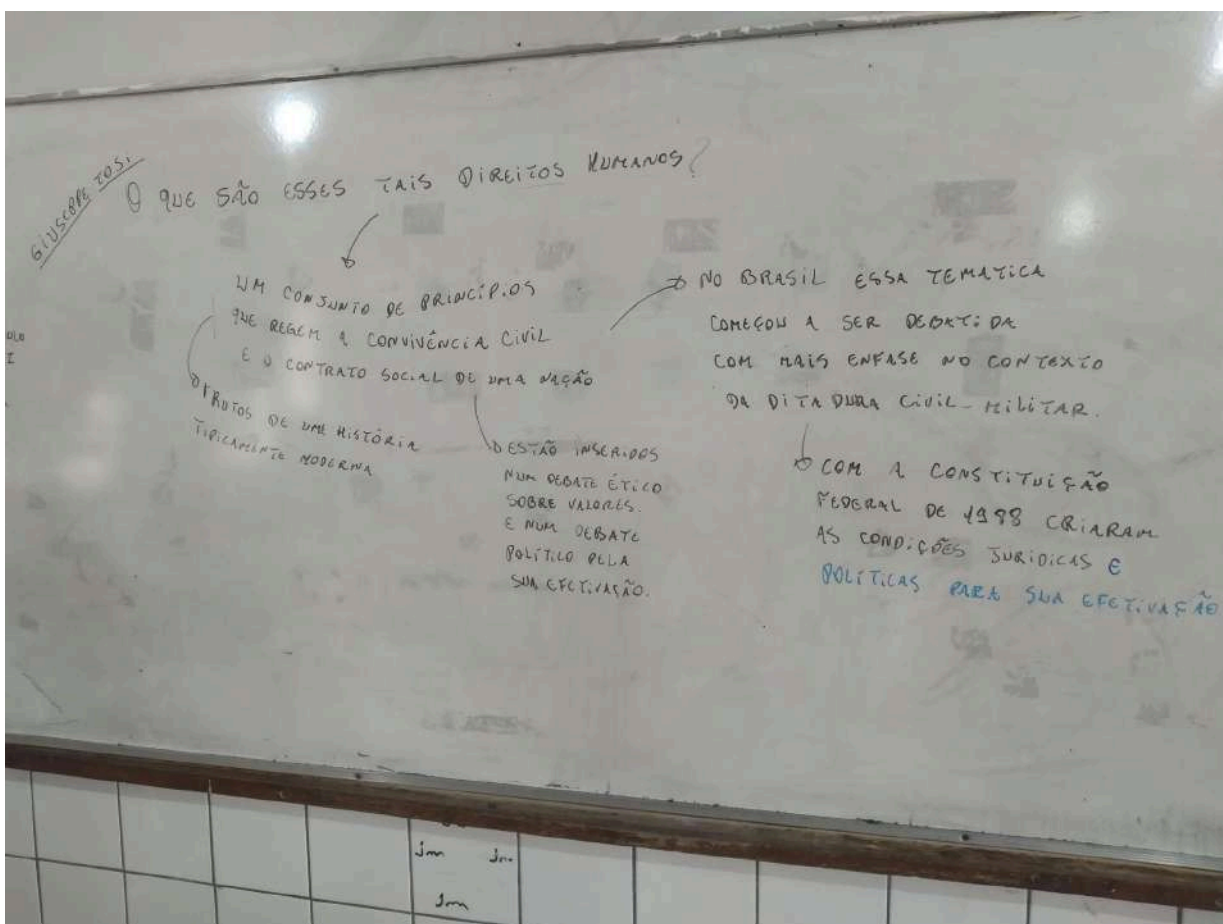 GIUSEPPE TOSI
O QUE SÃO ESSES TAIS DIREITOS HUMANOS?
UM CONJUNTO DE PRINCÍPIOS
QUE REGEM A CONVIVÊNCIA CIVIL
E O CONTRATO SOCIAL DE UMA NAÇÃO
FRUTOS DE UMA HISTÓRIA
TIPICAMENTE MODERNA
ESTÃO INSERIDOS
NUM DEBATE ÉTICO
SOBRE VALORES.
E NUM DEBATE
POLÍTICO PELA
SUA EFETIVAÇÃO.
NO BRASIL ESSA TEMATICA
COMEÇOU A SER DEBATIDA
COM MAIS ENFASE NO CONTEXTO
DA DITADURA CIVIL-MILITAR.
COM A CONSTITUIÇÃO
FEDERAL DE 1988 CRIARAM
AS CONDIÇÕES JURIDICAS E
POLÍTICAS PARA SUA EFETIVAÇÃO